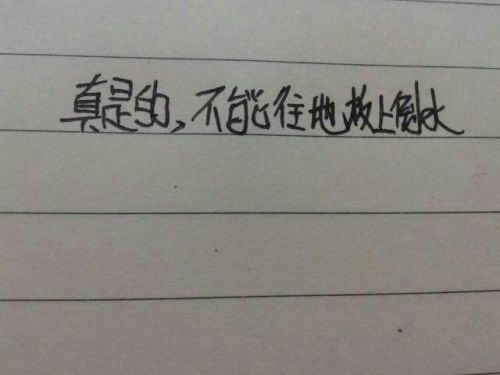 真是的,不能往地板上倒水